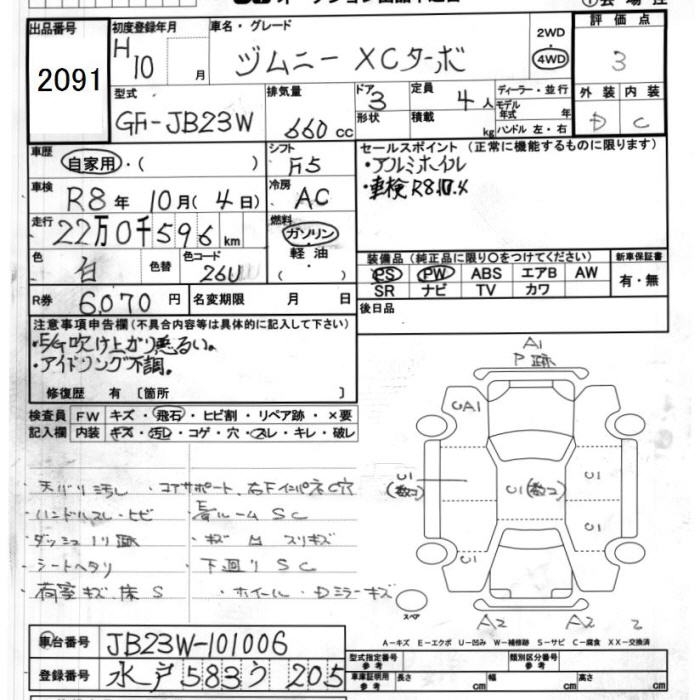 出品番号 2091
初度登録年月 H10 月
車名・グレード ジムニー XCターボ
2WD 4WD
評価点 3
型式 GF-JB23W
排気量 660 cc
ドア 3 形状
定員 4 人
積載 kg
ディーラー・並行
モデル年式 年
ハンドル 左・右
外装 内装
D C
車歴 自家用・( )
シフト F5
セールスポイント (正常に機能するものに限ります)
・アルミホイル
・車検R8.10.4
車検 R8年 10月(4日)
冷房 AC
走行 22万0千596 km
燃料 ガソリン・軽油・( )
色 白 色替 色コード 26U
装備品 (純正品に限り○をつけてください) 新車保証書
PS PW ABS エアB AW 有・無
SR ナビ TV カワ
R券 6,070円 名変期限 月 日
後日品
注意事項申告欄(不具合内容等は具体的に記入して下さい)
・E/G吹け上がり悪るい。
・アイドリング不調。
修復歴 有 〔箇所 〕
検査員記入欄
FW キズ・飛石・ヒビ割・リペア跡・×要
内装 キズ・汚レ・コゲ・穴・スレ・キレ・破レ
A1
P跡
CA1
C1 (数コ)
C1(数コ)
C1
C1
C1
スペア
A2 A2 2
天バリ汚レ ・コアサポート、右FインパネC穴
ハンドルスレ・ヒビ ・長ルームSC
ダッシュ
シートヘタリ ・下廻りSC
荷室キズ、床S ・ホイール・Dミラーキズ
A-キズ E-エクボ U-凹み W-補修跡 S-サビ C-腐食 XX-交換済
車台番号 JB23W-101006
登録番号 水戸583う205
型式指定番号 参考 類別区分番号 参考
車庫証明用 参考 長さ cm 幅 cm 高さ cm